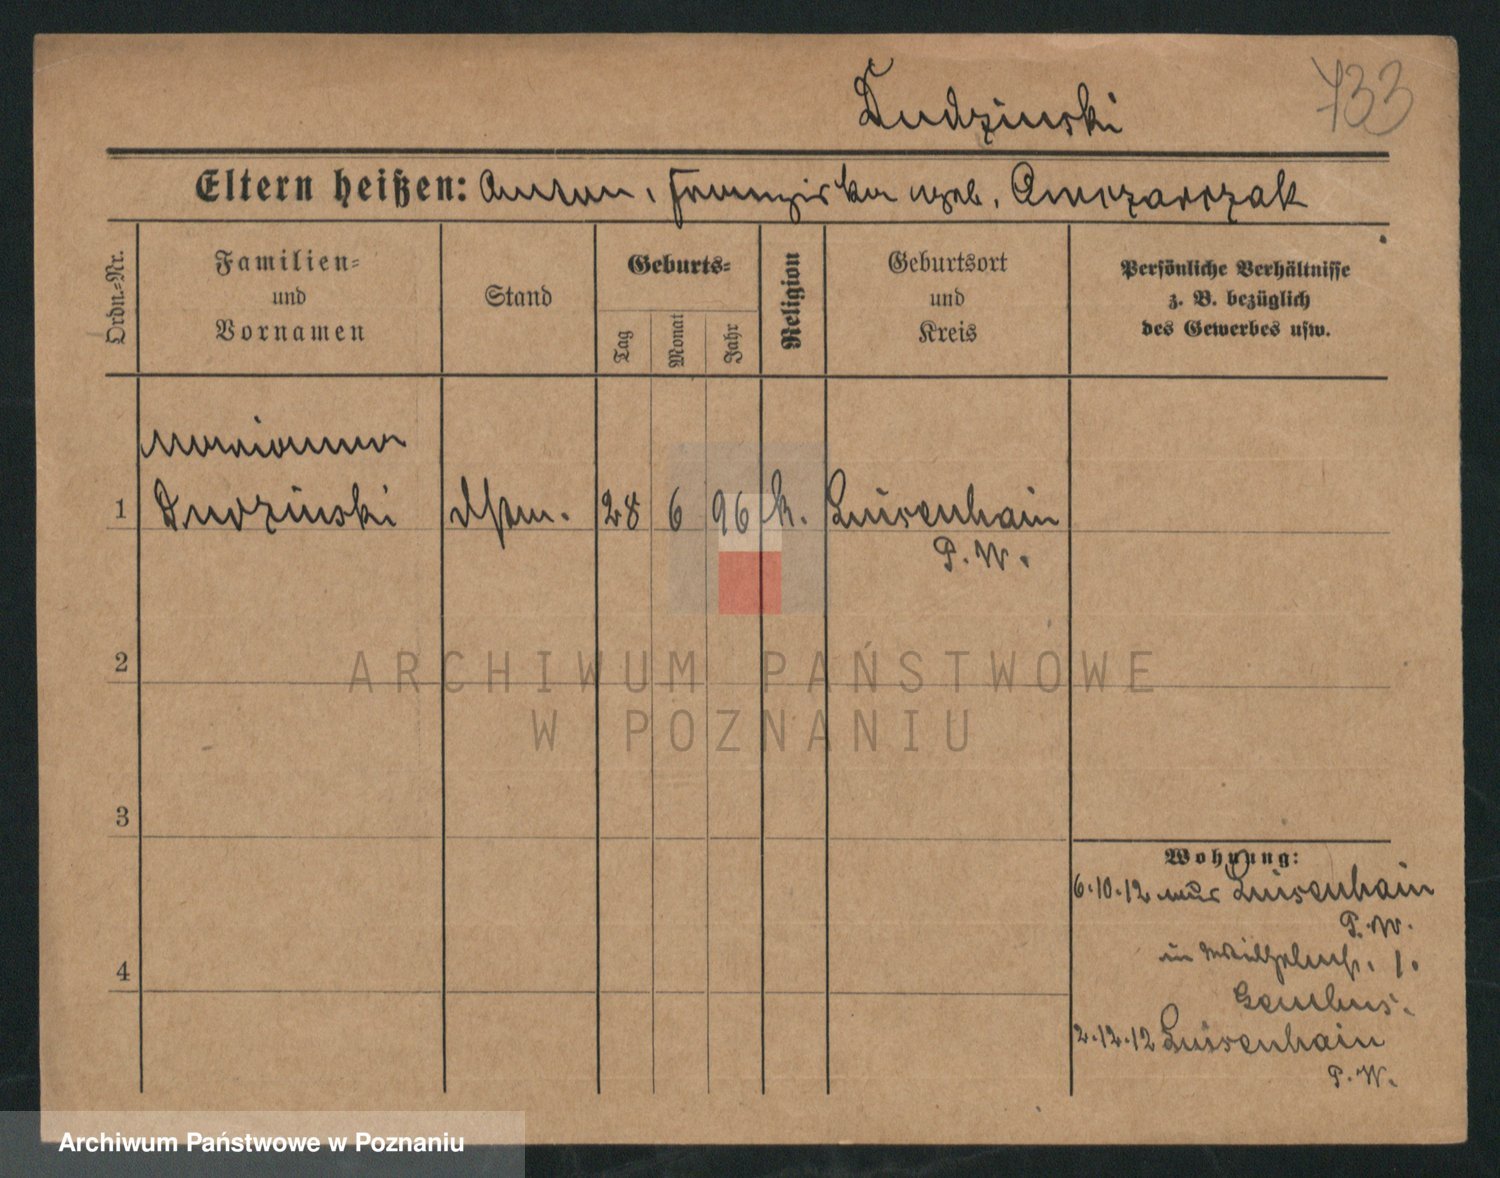 Dudzinski
733
Eltern heißen: Anton, Franziska geb. Owczarczak
Ordn.-Nr.
Familien-
und
Vornamen
Stand
Geburts-
Tag
Monat
Jahr
Religion
Geburtsort
und
Kreis
Persönliche Verhältnisse
z. B. bezüglich
des Gewerbes usw.
Marianna
1 Dudzinski 28 6 96 k. Luisenhain
P. W.
2
3
4
Wohnung:
6.10.12 aus Luisenhain
P. W.
in
2.12.12 Luisenhain
P. W.
ARCHIWUM PAŃSTWOWE
W POZNANIU
Archiwum Państwowe w Poznaniu